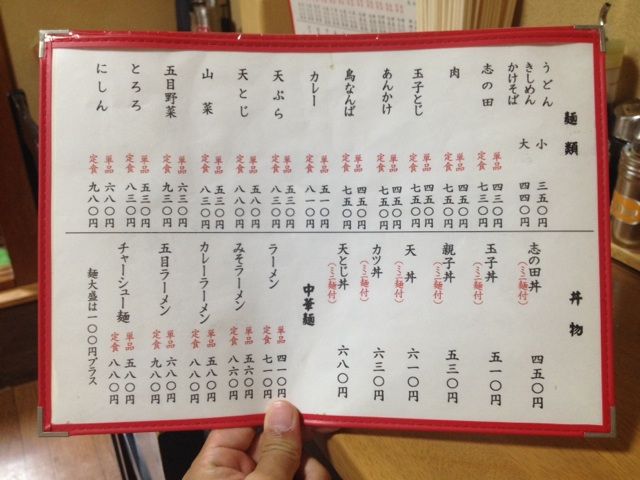 麺類
うどん
きしめん
かけそば
小 三五〇円
大 四四〇円
志の田 単品 四三〇円
定食 七三〇円
肉 単品 四五〇円
定食 七五〇円
玉子とじ 単品 四五〇円
定食 七五〇円
あんかけ 単品 四五〇円
定食 七五〇円
鳥なんば 単品 四五〇円
定食 七五〇円
カレー 単品 五一〇円
定食 八一〇円
天ぷら 単品 五三〇円
定食 八三〇円
天とじ 単品 五八〇円
定食 八八〇円
山菜 単品 五三〇円
定食 八三〇円
五目野菜 単品 六三〇円
定食 九三〇円
とろろ 単品 五三〇円
定食 八三〇円
にしん 単品 六八〇円
定食 九八〇円
丼物
志の田丼(ミニ麺付) 四五〇円
玉子丼(ミニ麺付) 五一〇円
親子丼(ミニ麺付) 五三〇円
天丼(ミニ麺付) 六一〇円
カツ丼(ミニ麺付) 六三〇円
天とじ丼(ミニ麺付) 六八〇円
中華麺
ラーメン 単品 四一〇円
定食 七一〇円
みそラーメン 単品 五六〇円
定食 八六〇円
カレーラーメン 単品 五八〇円
定食 八八〇円
五目ラーメン 単品 六八〇円
定食 九八〇円
チャーシュー麺 単品 五八〇円
定食 八八〇円
麺大盛は一〇〇円プラス